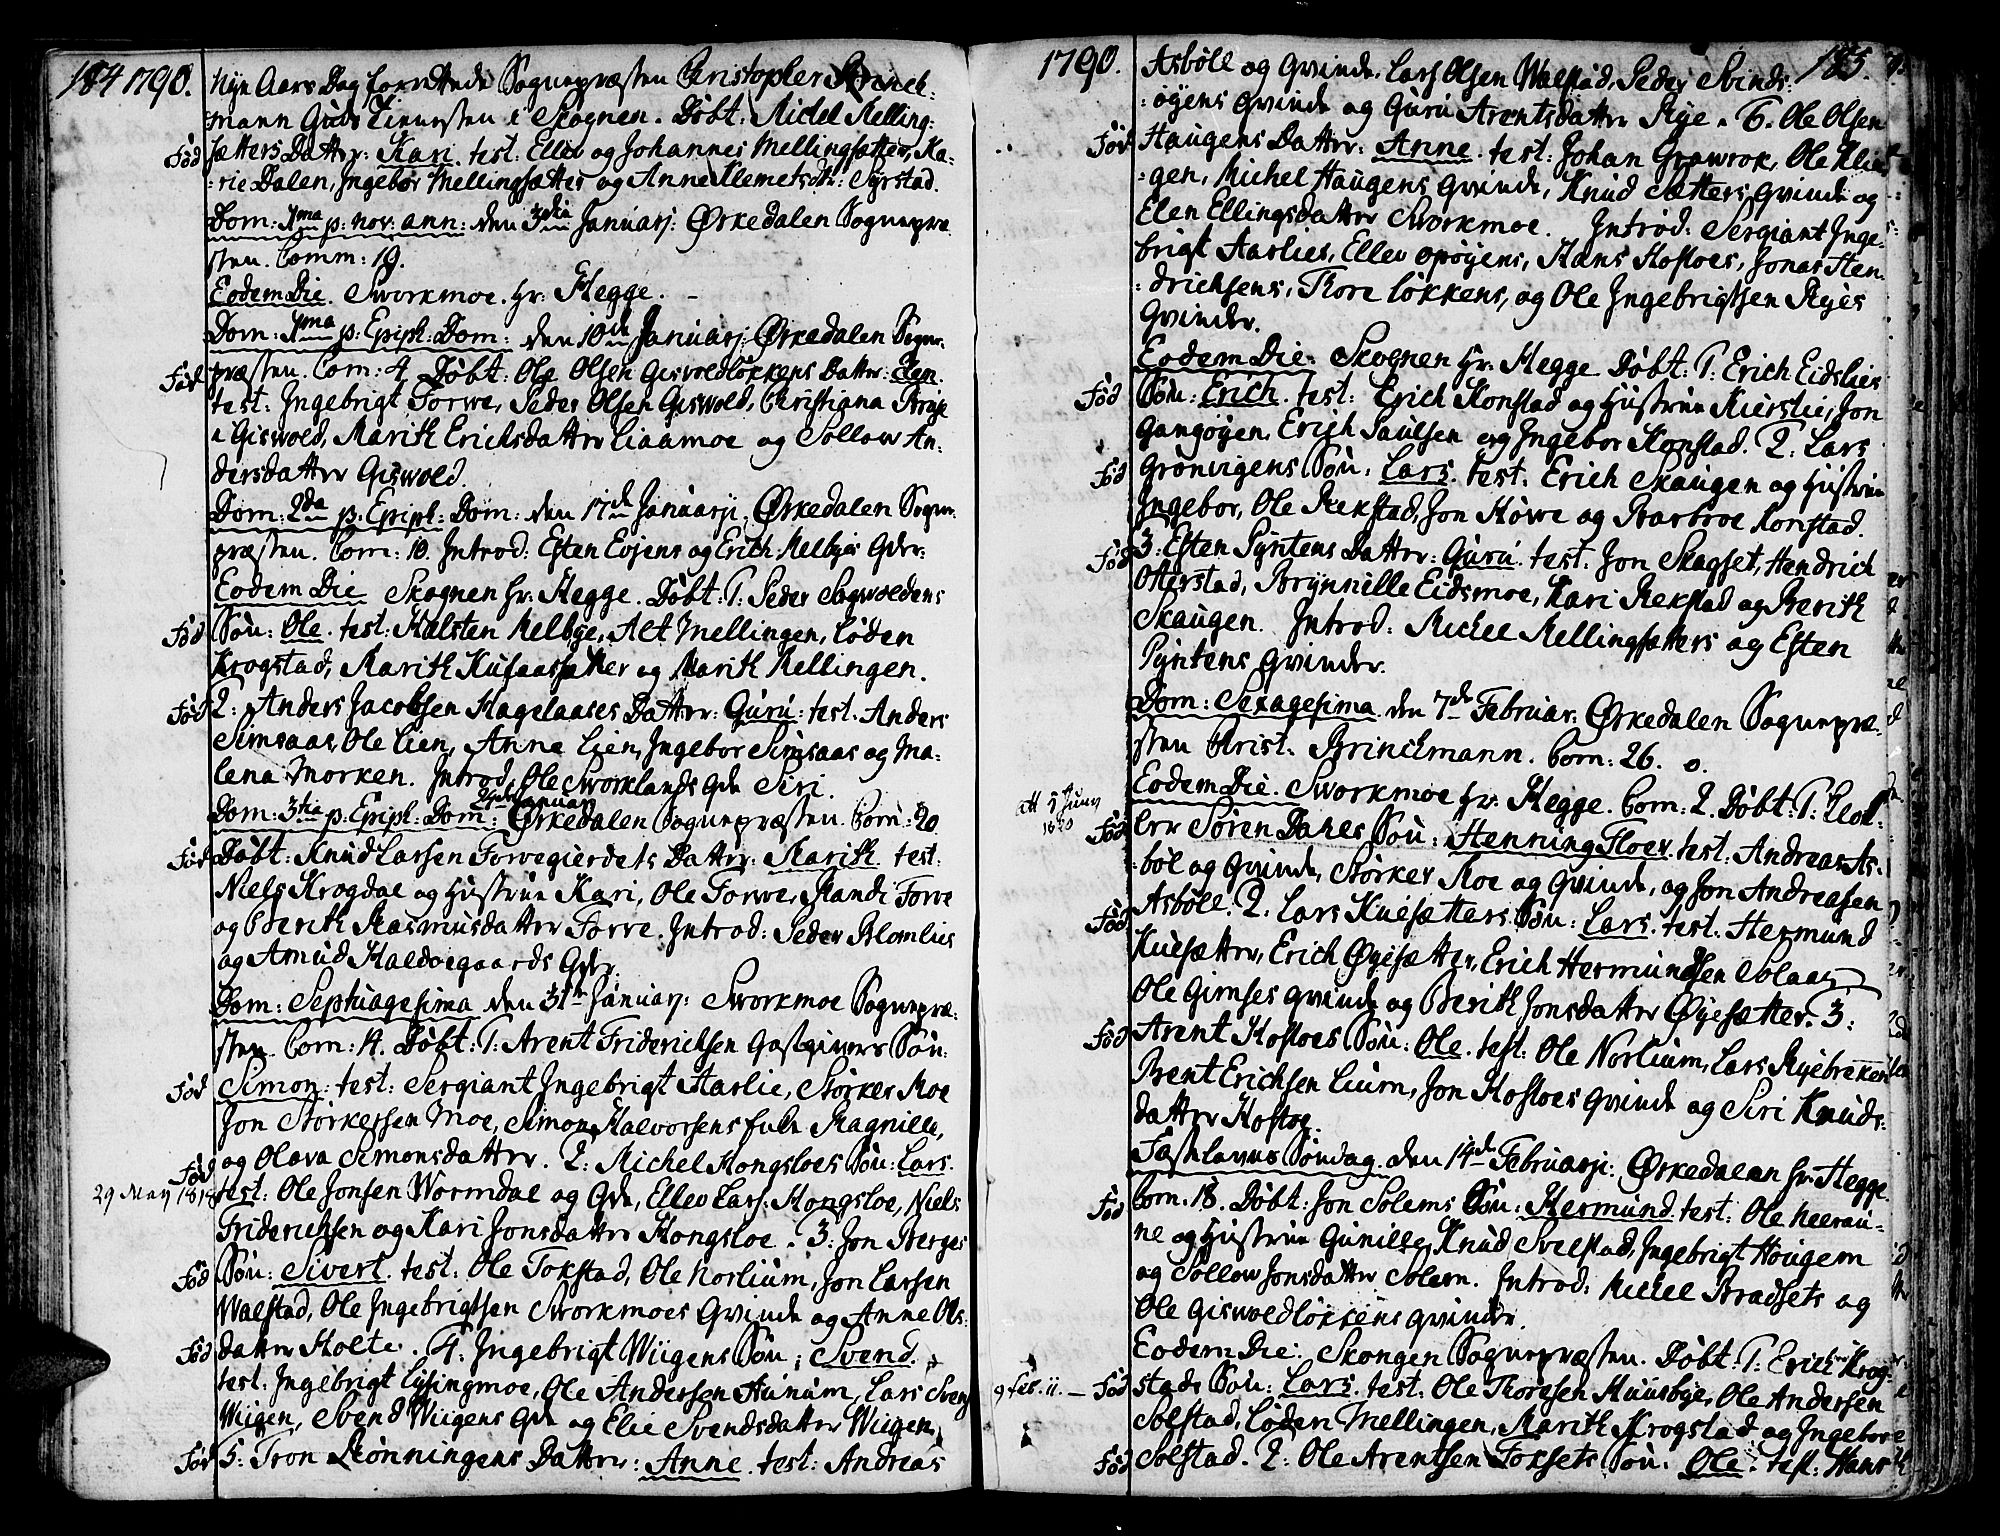 184 1790.
Nyn Aars Dag forrettede Sognepræsten Christopher Brinck-
mann Guds Tienesten i Skognen. Døbt: Michel Melling-
Fød sætters Datter: Kari. test: Ellev og Johannes Mellingsætter, Ka-
rie Dalen, Ingebor Mellingsætter og Anne Klemetsdtr: Syrstad.
Dom: 1ma p: nov: ann: den 3die Januarj: Ørkedalen Sognepræ-
sten. Comm: 19.
Eodem Die. Sworkmoe. hr: Hegge.
Dom: 1ma p: Epiph: Dom: den 10de Januarj: Ørkedalen Sogne-
Fød præsten. Com: 4. Døbt: Ole Olsen Giswoldløkkens Datter: Elen.
test: Ingebrigt Forwe, Peder Olsen Giswold, Christiana
i Giswold, Marith Erichsdatter Liaamoe og Sollow An-
dersdatter Giswold.
Dom: 2da p: Epiph: Dom: den 17de Januarji, Ørkedalen Sogne-
præsten. Com: 10. Introd: Esten Evjens og Erich Melbyes Qder:
Eodem Die Skognen hr: Hegge. Døbt: 1: Peder Sogwoldens
Fød Søn: Ole. test: Halsten Melbye, Alt Mellingen, Løden
Krogstad, Marith Kusaasætter og Marith Mellingen.
Fød 2: Anders Jacobsen Hagelaases Datter: Guru: test: Anders
Simsaas, Ole Lien, Anne Lien, Ingebor Simsaas og Ma-
lena Morken. Introd: Ole Sworklands Qde Siri.
24de Januarj
Dom: 3tia p: Epiph: Dom: Ørkedalen Sognepræsten. Com: 20.
Fød Døbt: Knud Larsen Forvegierdets Datter: Marith. test:
Niels Krogdal og Hustrue Kari, Ole Forwe, Randi Forve
og Berith Rasmusdatter Forve. Introd: Peder Blomlies
og Amund Haldoegaards Qder.
Dom: Septuagesima den 31te Januarj: Sworkmoe Sognepræ-
sten. Com: 4. Døbt: 1: Arent Friderichsen Gastgivers Søn:
Fød Simon: test: Sergiant Ingebrigt Aarlie, Størker Moe
Jon Størkersen Moe, Simon Halvorsens Enke Ragnille,
Fød og Olava Simonsdatter. 2: Michel Hongsloes Søn: Lars.
29 May 1818 test: Ole Jonsen Wormdal og Qde, Ellev Lars: Hongsloe, Niels
Friderichsen og Kari Jonsdatter Hongsloe. 3: Jon Berges
Fød Søn: Sivert. test: Ole Fokstad, Ole Norlium, Jon Larsen
Walstad, Ole Ingebrigtsen Sworkmoes Qvinde og Anne Ols-
Fød datter Holte. 4: Ingebrigt Wiigens Søn: Svend.
test: Ingebrigt Lysingmoe, Ole Andersen Aunum, Lars Svens
Wiigen, Svend Wiigens Qde og Elie Svendsdatter Wiigen,
Fød 5: Tron Lønningens Datter: Anne. test: Andreas
1790. 185.
Asbøll og Qvinde, Lars Olsen Walstad, Peder Svinds-
øyens Qvinde og Guru Arentsdatter Rye. 6. Ole Olsen
Fød Haugens Datter: Anne. test: Johan Grawrok, Ole Klin-
gen, Michel Haugens Qvinde, Knud Sætters Qvinde og
Elen Ellingsdatter Sworkmoe. Introd: Sergiant Inge-
brigt Aarlies, Ellev Opøyens, Hans Hosloes, Jonas Hen-
drichsens, Thore Løkkens, og Ole Ingebrigtsen Ryes
Qvinder.
Eodem Die. Skognen hr: Hegge Døbt: 1: Erich Eidslies
Fød Søn: Erich. test: Erich Konstad og Hustrue Kierstie, Jon
Gangøyen, Erich Paulsen og Ingebor Konstad. 2: Lars
Fød Grønvigens Søn: Lars. test: Erich Skaugen og Hustrue
Ingebor, Ole Rekstad, Jon Howe og Barbroe Konstad.
Fød 3: Esten Pyntens Datter: Guru. test: Jon Skagset, Hendrich
Otterstad, Brynnille Eidsmoe, Kari Rekstad og Berith
Skaugen. Introd: Michel Mellingsætters og Esten
Pyntens Qvinder.
Dom: Sexagesima den 7de Februar: Ørkedalen Sognepræ-
sten Christ: Brinckmann. Com: 26.
Eodem Die. Sworkmoe hr: Hegge. Com: 2. Døbt: 1:
Fød Søren Dahls Søn: Henning Floer. test: Andreas As-
bøl og Qvinde, Størker Moe og Qvinde, og Jon Andreasen
Fød Asbøll. 2: Lars Kuesætters Søn: Lars. test: Hermund
Kuesætter, Erich Øyesætter, Erich Hermundsen Solaas,
Ole Gimses Qvinde og Berith Jonsdatter Øyesætter. 3:
Fød Arent Hosloes Søn: Ole. test: Ole Norlium, Lars Ryebrekken
Brent Erichsen Lium, Jon Hosloes Qvinde og Siri Knuds-
datter Hosloe.
Fastelavns Søndag den 14de Februarji: Ørkedalen hr: Hegge.
Fød Com. 18. Døbt: Jon Solems Søn: Hermund. test: Ole
ne og Hustrue Gunille, Knud Svelstad, Ingebrigt Hougem
og Sollow Jonsdatter Solem. Introd: Michel Bradsets og
Ole Giswoldløkkens Qvinder.
Eodem Die: Skongen Sognepræsten. Døbt: 1: Erich Krog-
9 Feb. 11. Fød stads Søn: Lars. test: Ole Thoresen Muusbye, Ole Andersen
Solstad, Løden Mellingen, Marith Krogstad og Ingebore
Fød Solstad. 2: Ole Arentsen Foksets Søn: Ole. test: Hans